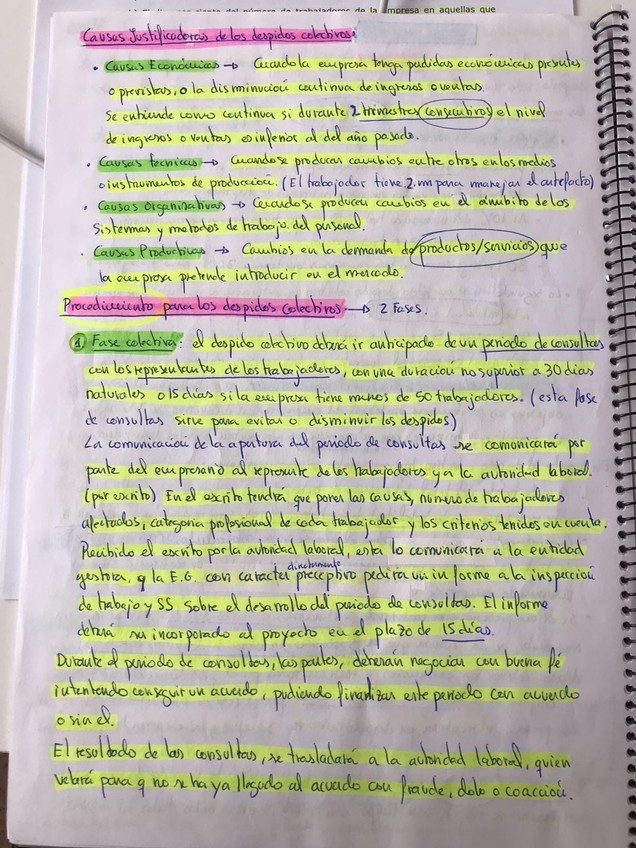 empresa en aquellas que
Causas Justificadoras de los despidos colectivos:
• Causas Económicas → Cuando la empresa tenga perdidas económicas presentes
o previstas, o la disminución continua de ingresos o ventas.
Se entiende como continua si durante 2 trimestres consecutivos el nivel
de ingresos o ventas es inferior al del año pasado.
• Causas técnicas → Cuando se producen cambios entre otros en los medios
o instrumentos de producción. (El trabajador tiene 2.m para manejar el artefacto)
• Causas Organizativas → Cuando se producen cambios en el ámbito de los
Sistemas y metodos de trabajo del personal.
• Causas Productivas → Cambios en la demanda de productos/servicios que
la empresa pretende introducir en el mercado.
Procedimiento para los despidos colectivos → 2 Fases.
1 Fase colectiva: el despido colectivo deberá ir anticipado de un periodo de consultas
con los representantes de los trabajadores, con una duración no superior a 30 días
naturales o 15 días si la empresa tiene menos de 50 trabajadores. (esta fase
de consultas sirve para evitar o disminuir los despidos)
La comunicación de la apertura del periodo de consultas se comunicará por
parte del empresario al represente de los trabajadores y a la autoridad laboral.
(por escrito) En el escrito tendrá que poner las causas, numero de trabajadores
afectados, categoria profesional de cada trabajador y los criterios tenidos en cuenta.
Recibido el escrito por la autoridad laboral, esta lo comunicará a la entidad
gestora, y la E.G. con caracter directamente preceptivo pedira un informe a la inspección
de trabajo y SS sobre el desarrollo del periodo de consultas. El informe
deberá ser incorporado al proyecto en el plazo de 15 días.
Durante el periodo de consultas, las partes, deberán negociar con buena fé
intentendo conseguir un acuerdo, pudiendo finalizar este periodo con acuerdo
o sin el.
El resultado de las consultas, se trasladará a la autoridad laboral, quien
velará para q no se haya llegado al acuerdo con fraude, dolo o coacción.